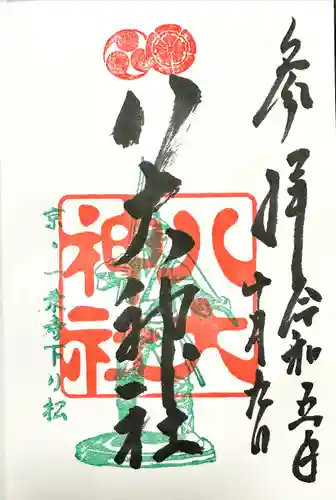 参拝 令和五年
十月九日
八大神社
八大
神社
京・一乗寺下り松